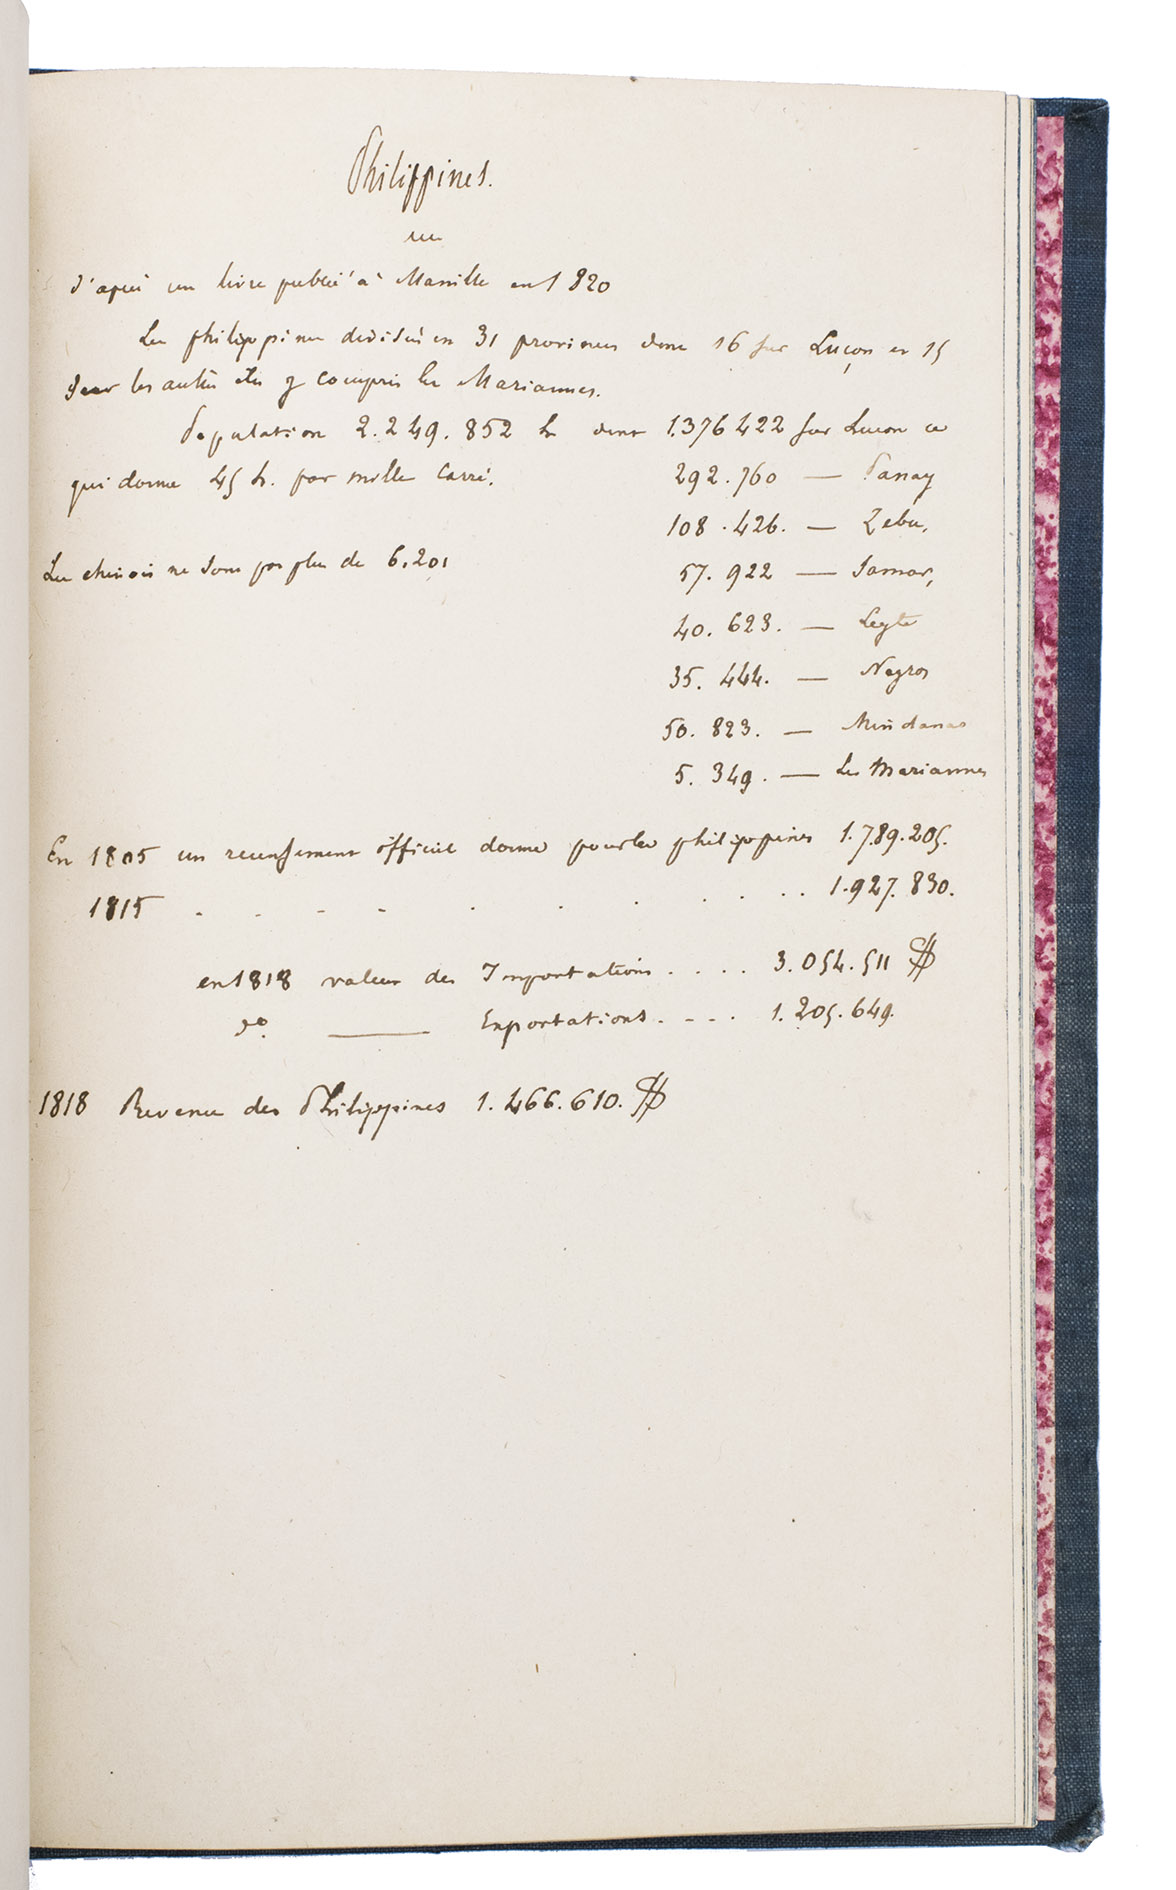 Philippines.
d'après un livre publié à Manille en 1820
Les philippines divisées en 31 provinces dont 16 sur Luçon et 15
sur les autres îles y compris les Mariannes.
Population 2.249.852 h dont 1.376 422 sur Luçon ce
qui donne 45 h. par mille carré.
292.760 — Panay
108.426. — Zebu,
Les chinois ne sont pas plus de 6.201
57.922 — Samar,
40.623. — Leyte
35.444. — Negros
50.823. — Mindanao
5.349. — Les Mariannes
En 1805 un recensement officiel donne pour les philippines 1.789.205.
1815 . . . . . . . . . . 1.927.830.
en 1818 valeur des Importations . . . . 3.054.511 $
do. — Exportations . . . . 1.205.649.
1818 Revenu des Philippines 1.466.610. $